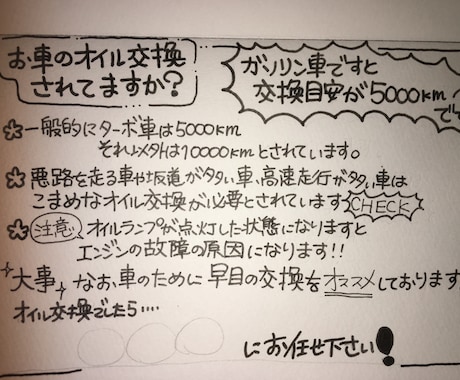 お車のオイル交換
されてますか?
ガソリン車ですと
交換目安が5000km
で
*一般的にターボ車は5000km
それ以外は10000kmとされています。
*悪路を走る車や坂道が多い車、高速走行が多い車は
こまめなオイル交換が必要とされています CHECK
*注意 オイルランプが点灯した状態になりますと
エンジンの故障の原因になります!!
大事 なお、車のために早目の交換をオススメしております
オイル交換でしたら....
にお任せ下さい!